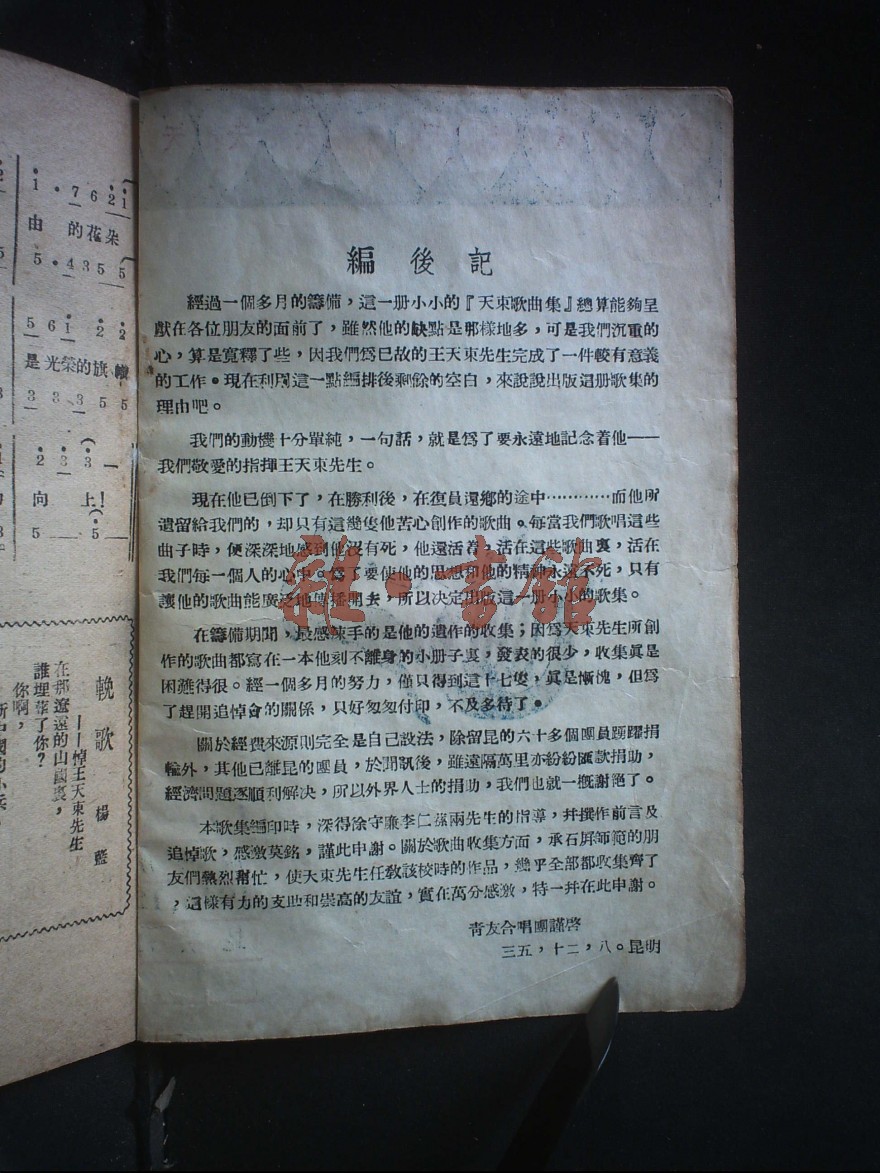 編後記
經過一個多月的籌備，這一册小小的『天東歌曲集』總算能夠呈
獻在各位朋友的面前了，雖然他的缺點是那樣地多，可是我們沉重的
心，算是寬釋了些，因我們爲已故的王天東先生完成了一件較有意義
的工作。現在利用這一點編排後剩餘的空白，來說說出版這册歌集的
理由吧。
我們的動機十分單純，一句話，就是爲了要永遠地記念着他——
我們敬愛的指揮王天東先生。
現在他已倒下了，在勝利後，在復員還鄉的途中…………而他所
遺留給我們的，却只有這幾隻他苦心創作的歌曲。每當我們歌唱這些
曲子時，便深深地感到他沒有死，他還活着，活在這些歌曲裏，活在
我們每一個人的心中。爲了要使他的思想和他的精神永遠不死，只有
讓他的歌曲能廣泛地傳播開去，所以决定出版這一册小小的歌集。
在籌備期間，最感辣手的是他的遺作的收集；因爲天東先生所創
作的歌曲都寫在一本他刻不離身的小册子裏，發表的很少，收集眞是
困難得很。經一個多月的努力，僅只得到這十七隻，眞是慚愧，但爲
了趕開追悼會的關係，只好匆匆付印，不及多待了。
關於經費來源則完全是自己設法，除留昆的六十多個團員踴躍捐
輸外，其他已離昆的團員，於聞訊後，雖遠隔萬里亦紛紛匯款捐助，
經濟問題逐順利解决，所以外界人士的捐助，我們也就一槪謝絕了。
本歌集編印時，深得徐守廉李仁蓀兩先生的指導，幷撰作前言及
追悼歌，感激莫銘，謹此申謝。關於歌曲收集方面，承石屏師範的朋
友們熱烈幇忙，使天東先生任敎該校時的作品，幾乎全部都收集齊了
，這樣有力的支助和崇高的友誼，實在萬分感激，特一幷在此申謝。
靑友合唱團謹啓
三五，十二，八。昆明
雜·書館
1·7621
由 的花朵
5·4355
5612 2
是光榮的旗幟
33355
2 3 3—
向 上！
5 5
輓歌 楊藍
——悼王天東先生
在那遼遠的山國裏，
誰埋葬了你？
你啊，